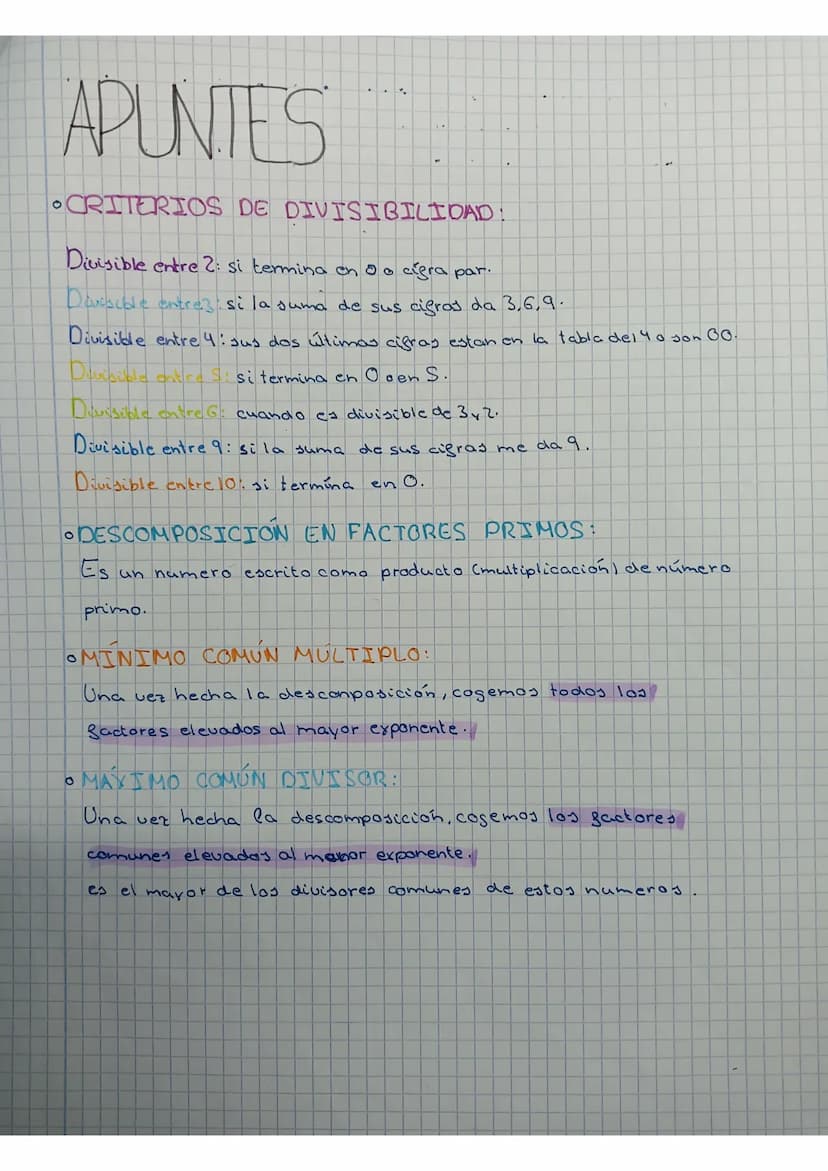 APUNTES
CRITERIOS DE DIVISIBILIDAD:
Divisible entre 2: si termina en 0 o cifra par.
Divisible entre 3: si la suma de sus cifras da 3,6,9.
Divisible entre 4: sus dos últimas cifras estan en la tabla del 4 o son 00.
Divisible entre 5: si termina en 0 o en 5.
Divisible entre 6: cuando es divisible de 3 y 2.
Divisible entre 9: si la suma de sus cifras me da 9.
Divisible entre 10: si termína en 0.
DESCOMPOSICIÓN EN FACTORES PRIMOS:
Es un numero escrito como producto (multiplicación) de número
primo.
MÍNIMO COMÚN MÚLTIPLO:
Una vez hecha la desconposición, cogemos todos los
factores elevados al mayor exponente.
MÁXIMO COMÚN DIVISOR:
Una vez hecha la descomposición, cogemos los factores
comunes elevados al menor exponente.
es el mayor de los divisores comunes de estos numeros.